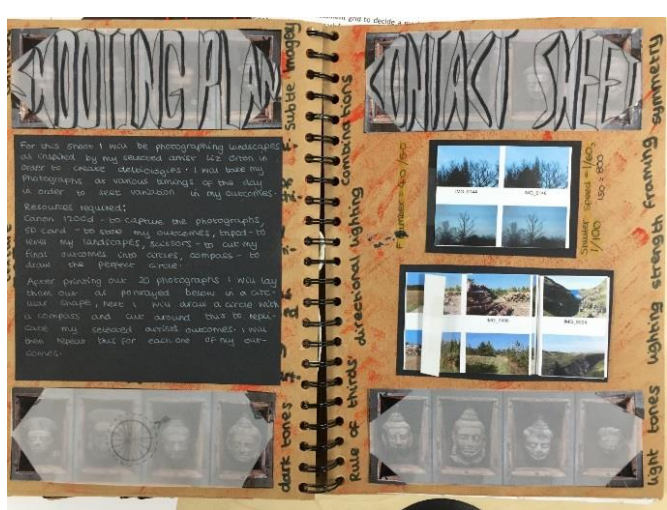 SHOOTING PLAN
For this shoot I will be photographing landscapes
as inspired by my selected artist Liz Orton in
order to create delineologies. I will take my
photographs at various timings of the day
in order to test variation in my outcomes.
Resources required:
Canon 1200d - to capture the photographs,
SD card - to store my outcomes, tripod - to
level my landscapes, scissors - to cut my
final outcomes into circles, compass - to
draw the perfect circle.
After printing out 20 photographs I will lay
them out as portrayed below in a circ-
ular shape, here I will draw a circle with
a compass and cut around this to repli-
cate my selected artists outcomes. I will
then repeat this for each one of my out-
comes.
Subtle Imagery
dark tones
grid to decide a
CONTACT SHEET
Rule of thirds directional lighting combinations
IMG_0144
F number = 4.0 / 5.0
Shutter speed = 1/60,
1/100
ISO = 800
light tones lighting strength framing symmetry